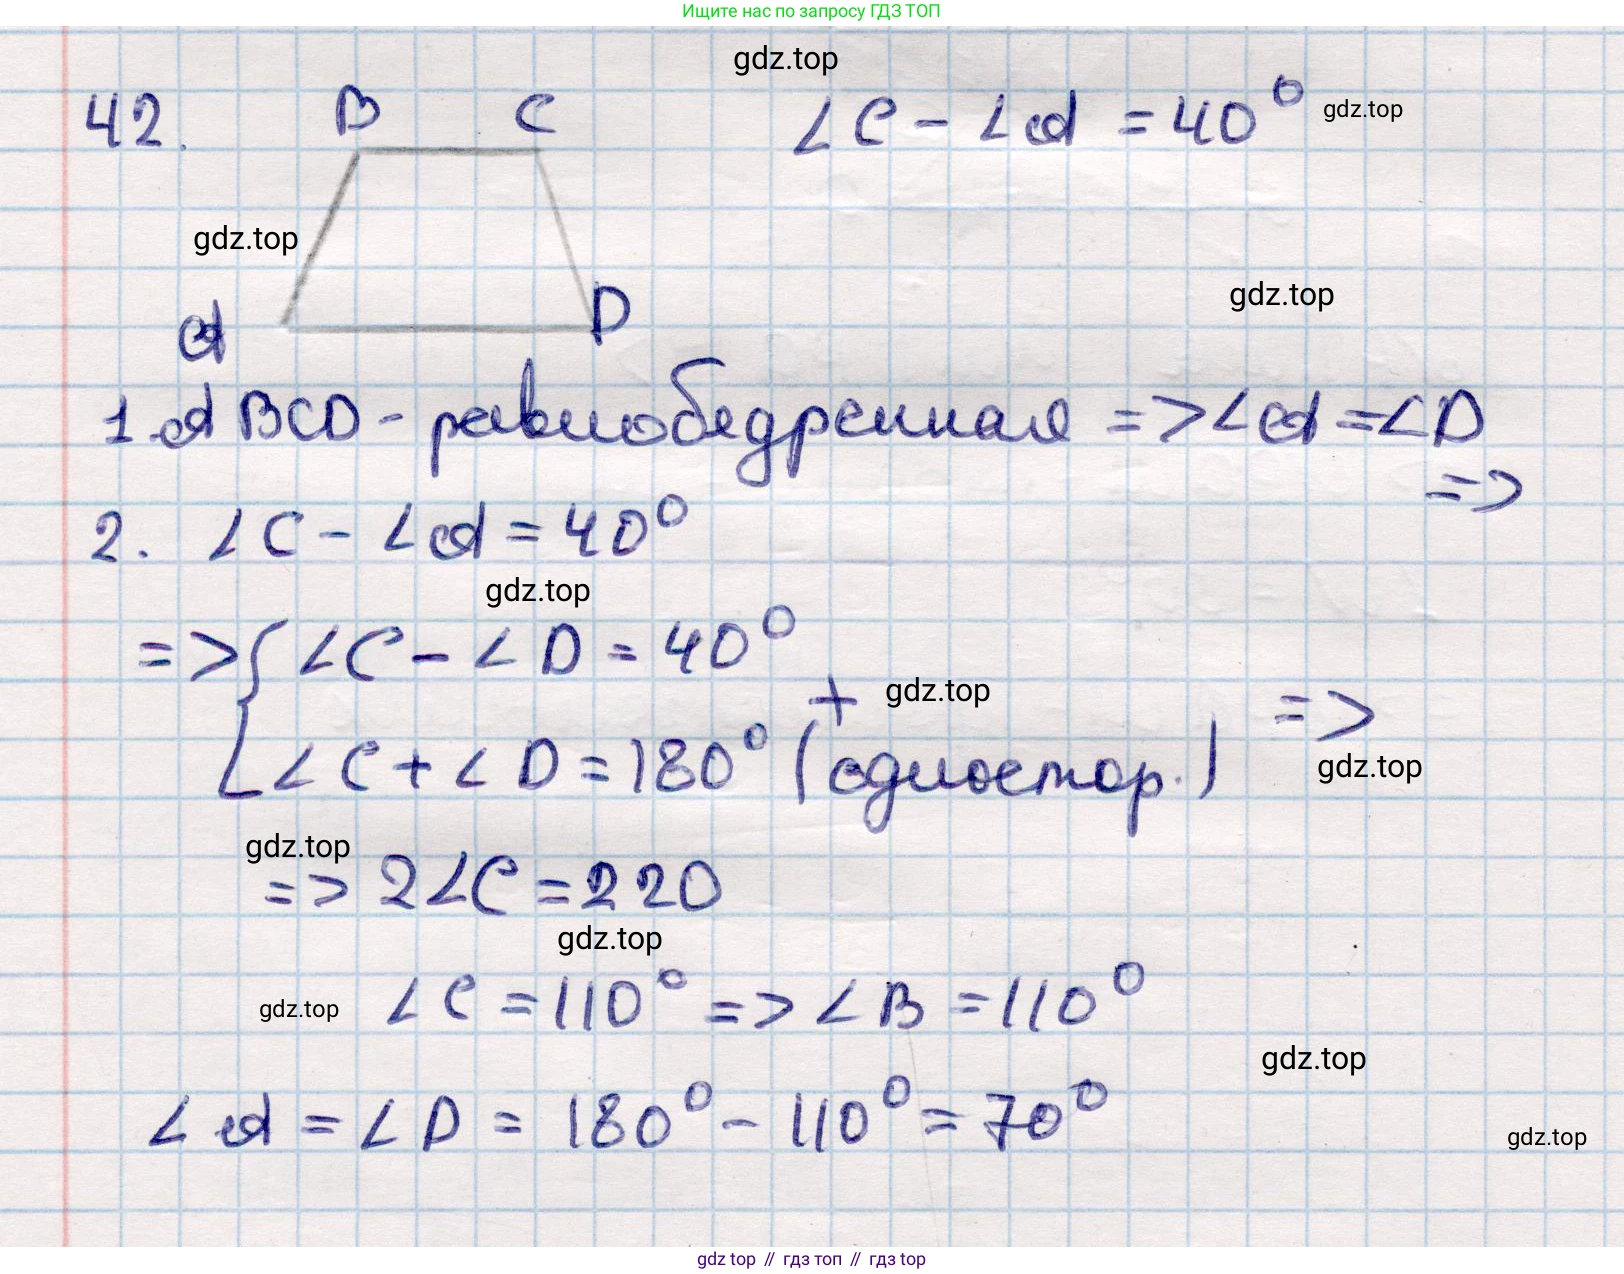 Ищите нас по запросу ГДЗ ТОП
gdz.top
42. B C ∠C - ∠A = 40° gdz.top
gdz.top
gdz.top
A D
1. ABCD - равнобедренная => ∠A = ∠D
=>
2. ∠C - ∠A = 40°
gdz.top
=> { ∠C - ∠D = 40°
+ gdz.top =>
∠C + ∠D = 180° (одностор.) gdz.top
gdz.top
=> 2∠C = 220
gdz.top
gdz.top ∠C = 110° => ∠B = 110°
gdz.top
∠A = ∠D = 180° - 110° = 70°
gdz.top
gdz top // гдз топ // гдз top